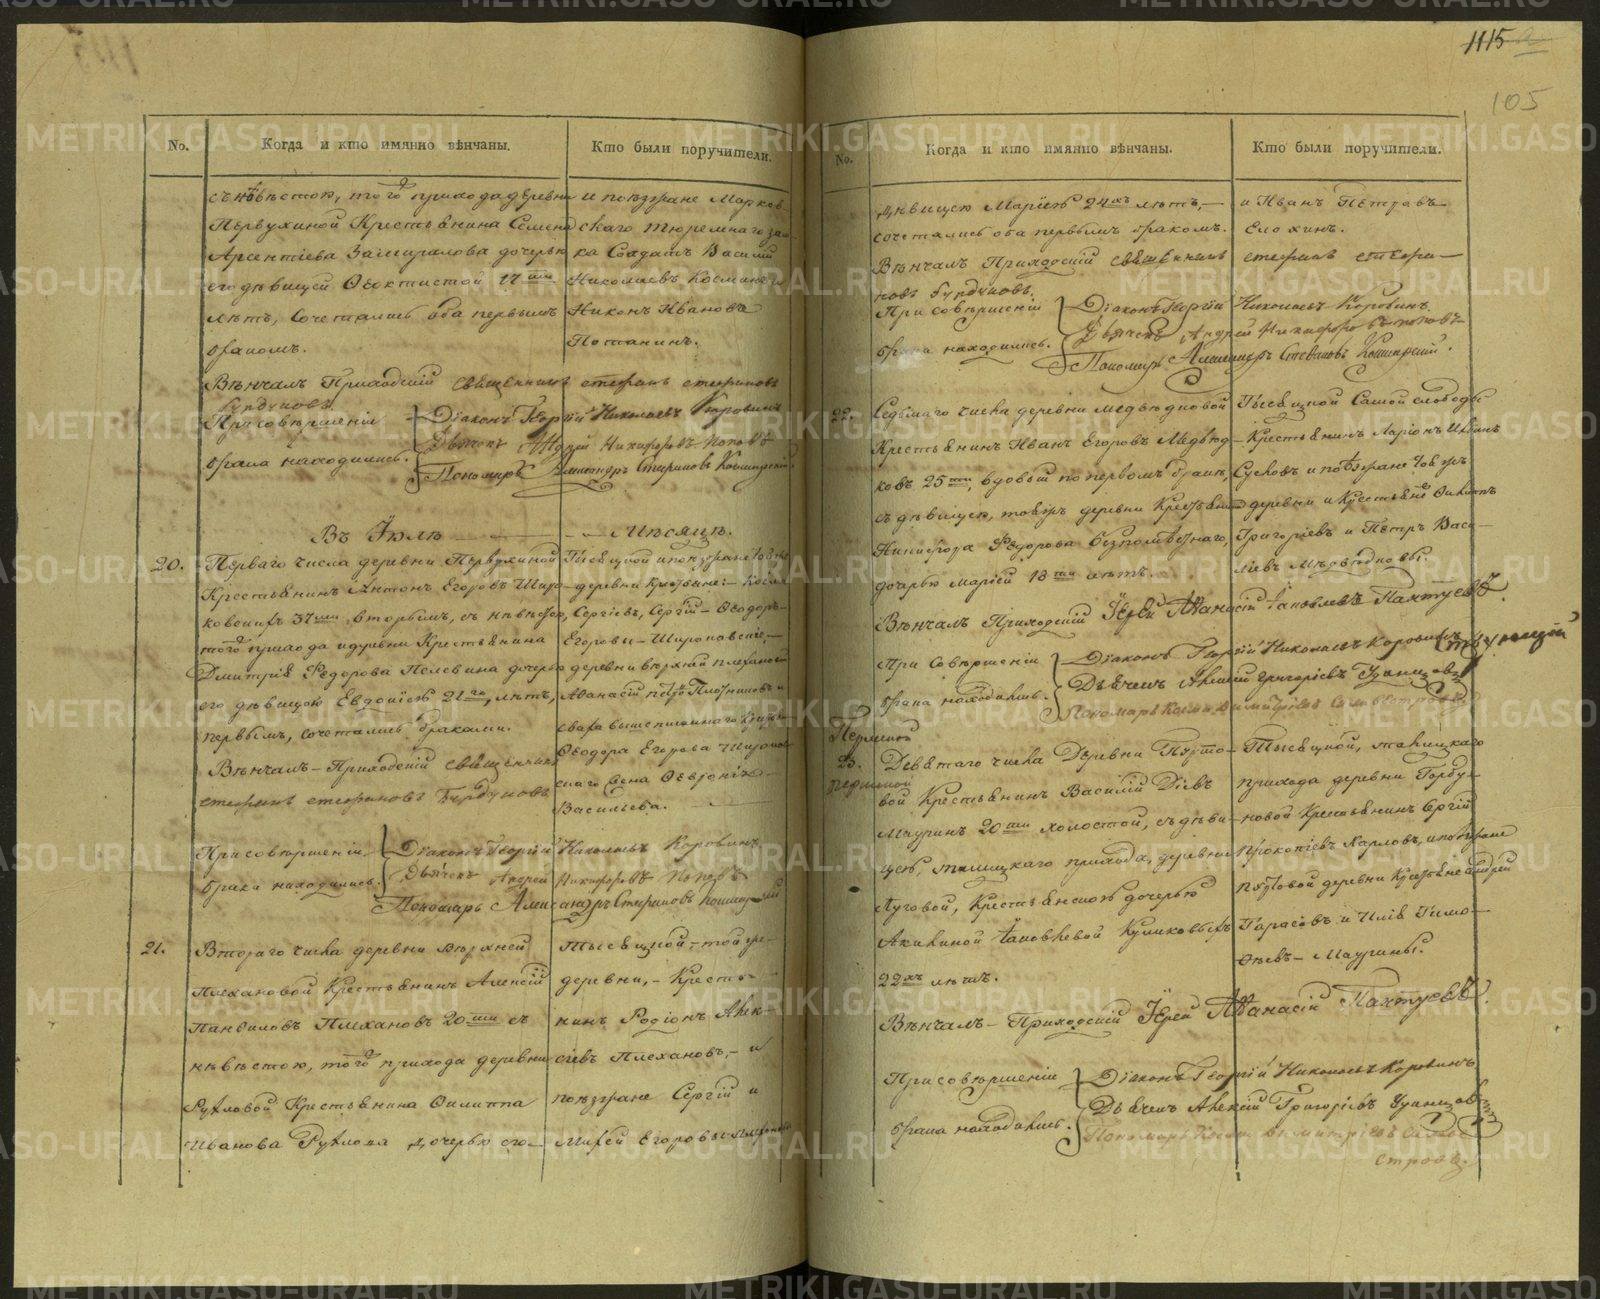 1115
105
No.
Когда и кто имянно вѣнчаны.
Кто были поручители.
съ невѣстою, того прихода деревни
Первухиной Крестьянина Семена
Арсентіева Замиралова дочерью
его дѣвицей Ѳеоктистой 17
лѣтъ, сочетались оба первымъ
бракомъ.
и поѣзжане Марков
скаго тюремнаго зам
ка Солдатъ Василій
Николаевъ
Никонъ Ивановъ
Потанинъ.
Вѣнчалъ Приходскій священникъ стефанъ стефановъ
Бурдуковъ
При совершеніи
брака находились.
Діаконъ Георгій Николаевъ Коровинъ
Дьячекъ Андрей Никифоровъ Поповъ
Пономарь Александръ Стефановъ
Въ Іюлѣ Мѣсяцѣ.
20.
Перваго числа деревни Первухиной
Крестьянинъ Антонъ Егоровъ Широ
ковскихъ 37 вторымъ, съ невѣстою,
того прихода и деревни Крестьянина
Дмитрія Ѳедорова Пелевина дочерью
его дѣвицею Евдокіею 21 лѣтъ,
первымъ, сочетались браками.
Вѣнчалъ Приходскій священникъ
стефанъ стефановъ Бурдуковъ
Тысяцкой и поѣзжане
деревни Крестьяне:
Сергіевъ, Сергій Ѳеодоръ
Егоровы
деревни верхней плехановой
Аѳанасій Плотниковъ и
сваха вышеписаннаго
Ѳеодора Егорова Широков
скаго жена
Васильева.
При совершеніи
брака находились.
Діаконъ Георгій Николаевъ Коровинъ
Дьячекъ Андрей Никифоровъ Поповъ
Пономарь Александръ Стефановъ
21.
Втораго числа деревни Верхней
Плехановой Крестьянинъ Алексій
Панфиловъ Плехановъ 20 съ
невѣстою, того прихода деревни
Рухловой Крестьянина Филиппа
Иванова Рухлова дочерью его
Тысяцкой той же
деревни, Крестья
нинъ Родіонъ Алек
сіевъ Плехановъ, и
поѣзжане Сергій и
Мокей Егоровы Плехановы
No.
Когда и кто имянно вѣнчаны.
Кто были поручители.
дѣвицею Маріею 24 лѣтъ,
сочетались оба первымъ бракомъ.
и Иванъ Петровъ
Елохинъ.
Вѣнчалъ Приходскій священникъ стефанъ стефа
новъ Бурдуковъ,
При совершеніи
брака находились.
Діаконъ Георгій Николаевъ Коровинъ
Дьячекъ Андрей Никифоровъ поповъ
Пономарь Александръ Стефановъ
22.
Седьмаго числа деревни Медвѣдковой
Крестьянинъ Иванъ Егоровъ Медвѣд
ковъ 25, вдовый по первомъ бракѣ,
съ дѣвицею, тоя жъ деревни Крестьянина
Никифора Ѳедорова
дочерью Маріей 18 лѣтъ.
Тысяцкой Самой слободы
Крестьянинъ Ларіонъ Ивановъ
Сусловъ и поѣзжане той жъ
деревни и Крестьяне Филиппъ
Григоріевъ и Петръ Васи
льевъ Медвѣдковы.
Вѣнчалъ Приходскій Іерей Аѳанасій Іаковлевъ Пахтусовъ.
При совершеніи
брака находились.
Діаконъ Георгій Николаевъ Коровинъ
Дьячекъ Алексій Григоріевъ
Пономарь Косма Димитріевъ
23.
Девятаго числа Деревни
вой Крестьянинъ Василій
Мауринъ 20 холостой, съ дѣви
цею, талицкаго прихода, деревни
Луговой, Крестьянскою дочерью
Акилиной Іаковлевой Куликовыхъ
22 лѣтъ.
Тысяцкой, талицкаго
прихода деревни Горбу
новой Крестьянинъ Сергій
Прокопіевъ Карповъ, и поѣзжане
деревни Крестьяне Андрей
Тарасовъ и Илія Тимо
ѳеевъ Маурины.
Вѣнчалъ Приходскій Іерей Аѳанасій Пахтусовъ.
При совершеніи
брака находились.
Діаконъ Георгій Николаевъ Коровинъ
Дьячекъ Алексій Григоріевъ
Пономарь Косма Димитріевъ
METRIKI.GASO-URAL.RU